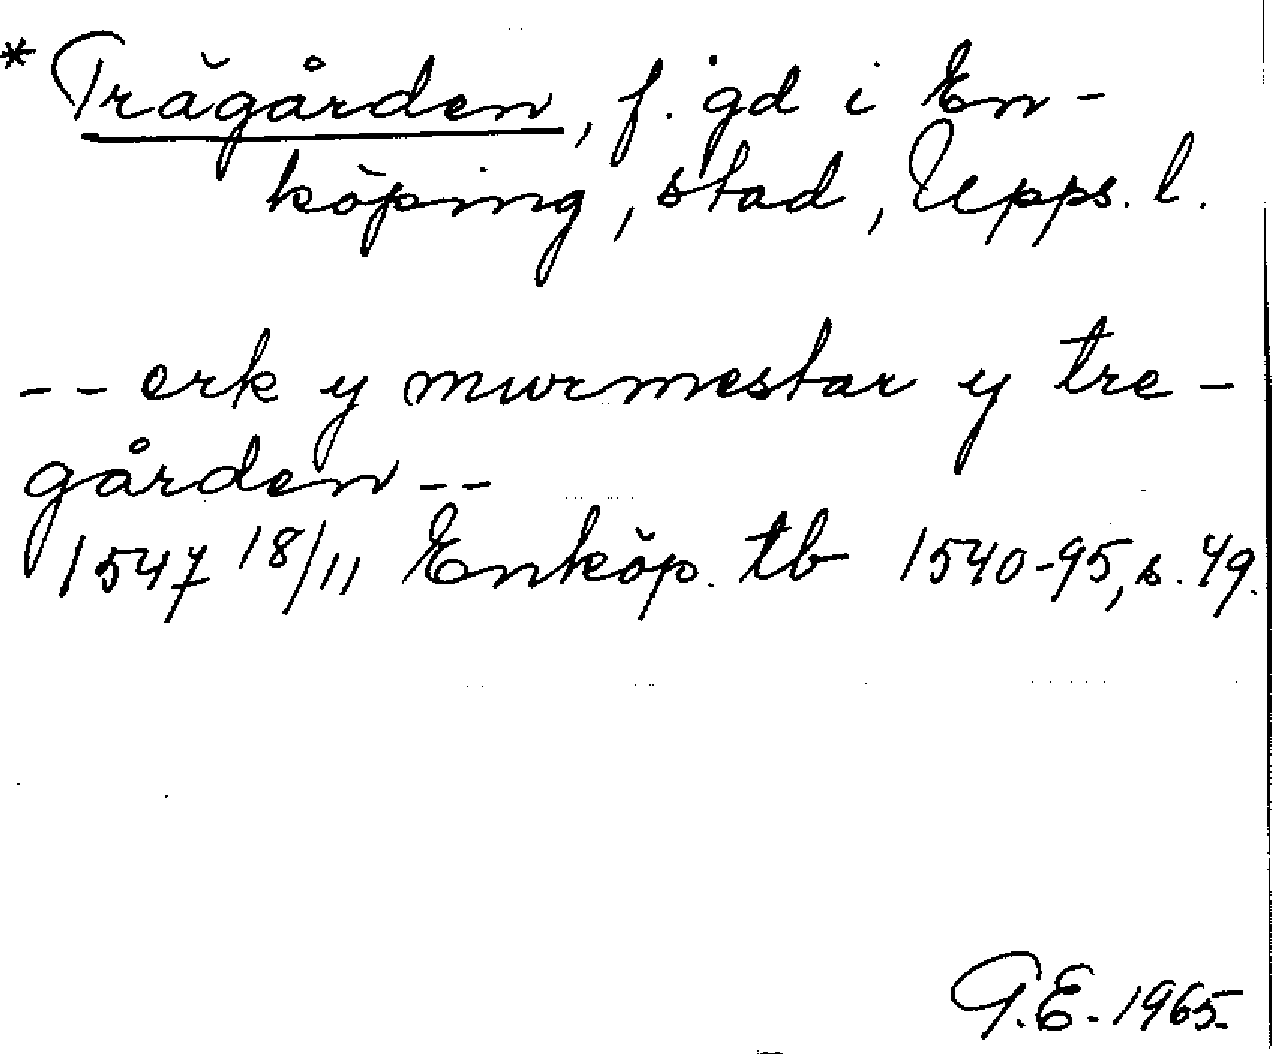 * Trägården, f. gd i En-
köping, stad, Upps. l.
-- erk y murmestar y tre-
gården --
1547 18/11 Enköp. tb 1540-95, s. 49.
G.E. 1965.